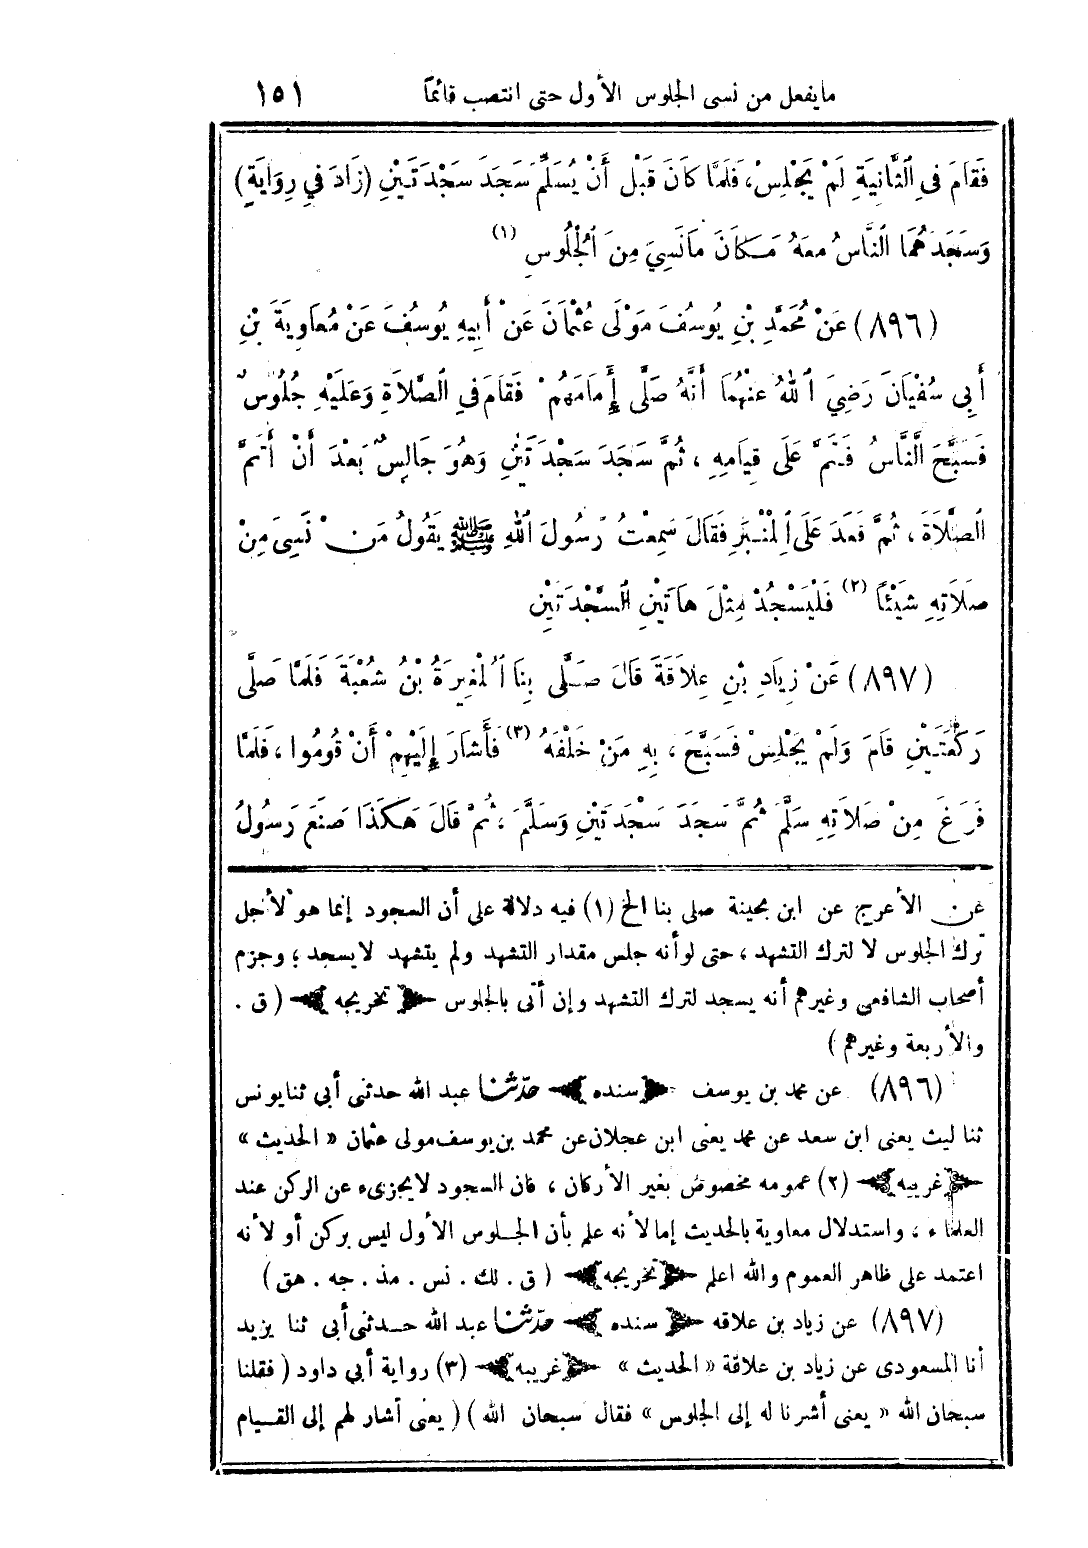 مايفعل من نسى الجلوس الأول حتى انتصب قائماً ١٥١
فَقَامَ فِى الثَّانِيَةِ لَمْ يَجْلِسْ، فَلَمَّا كَانَ قَبْلَ أَنْ يُسَلِّمَ سَجَدَ سَجْدَتَيْنِ (زَادَ فِي رِوَايَةٍ)
وَسَجَدَهُمَا النَّاسُ مَعَهُ مَكَانَ مَانَسِيَ مِنَ الْجُلُوسِ (١)
(٨٩٦) عَنْ مُحَمَّدِ بْنِ يُوسُفَ مَوْلَى عُثْمَانَ عَنْ أَبِيهِ يُوسُفَ عَنْ مُعَاوِيَةَ بْنِ
أَبِى سُفْيَانَ رَضِيَ اللهُ عَنْهُمَا أَنَّهُ صَلَّى إِمَامَهُمْ فَقَامَ فِى الصَّلَاةِ وَعَلَيْهِ جُلُوسٌ
فَسَبَّحَ النَّاسُ فَتَمَّ عَلَى قِيَامِهِ، ثُمَّ سَجَدَ سَجْدَتَيْنِ وَهُوَ جَالِسٌ بَعْدَ أَنْ أَتَمَّ
الصَّلَاةَ، ثُمَّ قَعَدَ عَلَى الْمِنْبَرِ فَقَالَ سَمِعْتُ رَسُولَ اللهِ ﷺ يَقُولُ مَنْ نَسِىَ مِنْ
صَلَاتِهِ شَيْئًا (٢) فَلْيَسْجُدْ مِثْلَ هَاتَيْنِ السَّجْدَتَيْنِ
(٨٩٧) عَنْ زِيَادِ بْنِ عِلَاقَةَ قَالَ صَلَّى بِنَا الْمُغِيرَةُ بْنُ شُعْبَةَ فَلَمَّا صَلَّى
رَكْعَتَيْنِ قَامَ وَلَمْ يَجْلِسْ فَسَبَّحَ، بِهِ مَنْ خَلْفَهُ (٣) فَأَشَارَ إِلَيْهِمْ أَنْ قُومُوا، فَلَمَّا
فَرَغَ مِنْ صَلَاتِهِ سَلَّمَ ثُمَّ سَجَدَ سَجْدَتَيْنِ وَسَلَّمَ، ثُمَّ قَالَ هَكَذَا صَنَعَ رَسُولُ
عن الأعرج عن ابن بحينة صلى بنا الخ (١) فيه دلالة على أن السجود إنما هو لأجل
ترك الجلوس لا لترك التشهد، حتى لوأنه جلس مقدار التشهد ولم يتشهد لايسجد؛ وجزم
أصحاب الشافعى وغيرهم أنه يسجد لترك التشهد وإن أتى بالجلوس ﴿ تخريجه ﴾ (ق.
والأربعة وغيرهم)
(٨٩٦) عن محمد بن يوسف ﴿ سنده ﴾ حدّثنا عبد الله حدثنى أبى ثنا يونس
ثنا ليث يعنى ابن سعد عن محمد يعنى ابن عجلان عن محمد بن يوسف مولى عثمان « الحديث »
﴿ غريبه ﴾ (٢) عمومه مخصوص بغير الأركان، فان السجود لايجزىء عن الركن عند
العلماء، واستدلال معاوية بالحديث إما لأنه علم بأن الجلوس الأول ليس بركن أو لأنه
اعتمد على ظاهر العموم والله اعلم ﴿ تخريجه ﴾ (ق. لك. نس. مذ. جه. هق)
(٨٩٧) عن زياد بن علاقه ﴿ سنده ﴾ حدّثنا عبد الله حدثنى أبى ثنا يزيد
أنا المسعودى عن زياد بن علاقة « الحديث » ﴿ غريبه ﴾ (٣) رواية أبى داود (فقلنا
سبحان الله « يعنى أشرنا له إلى الجلوس » فقال سبحان الله) (يعنى آشار لهم إلى القيام